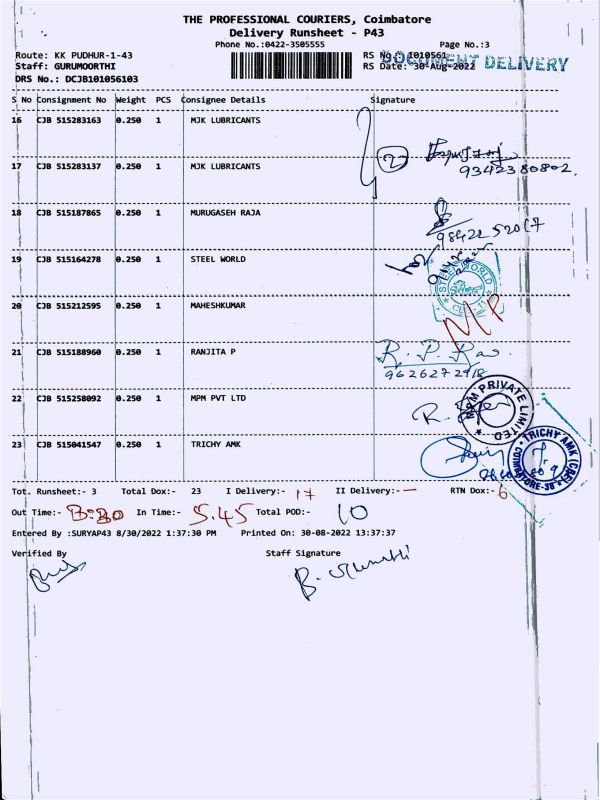 THE PROFESSIONAL COURIERS, Coimbatore
Delivery Runsheet - P43
Phone No.:0422-3505555 Page No.:3
Route: KK PUDHUR-1-43 RS No.: 1010561
DOCUMENT DELIVERY
Staff: GURUMOORTHI RS Date: 30-Aug-2022
DRS No.: DCJB101056103
S No Consignment No Weight PCS Consignee Details Signature
16 CJB 515283163 0.250 1 MJK LUBRICANTS
17 CJB 515283137 0.250 1 MJK LUBRICANTS 2
9342380802.
18 CJB 515187865 0.250 1 MURUGASEH RAJA
19 CJB 515164278 0.250 1 STEEL WORLD
STEEL WORLD
20 CJB 515212595 0.250 1 MAHESHKUMAR MP
21 CJB 515188960 0.250 1 RANJITA P R. P. Rao.
22 CJB 515258092 0.250 1 MPM PVT LTD
MPM PRIVATE LIMITED
23 CJB 515041547 0.250 1 TRICHY AMK
TRICHY AMK (CBE) COIMBATORE-38
Tot. Runsheet:- 3 Total Dox:- 23 I Delivery:- 17 II Delivery:- — RTN Dox:- 6
Out Time:- In Time:- 5.45 Total POD:- 10
Entered By :SURYAP43 8/30/2022 1:37:30 PM Printed On: 30-08-2022 13:37:37
Verified By Staff Signature